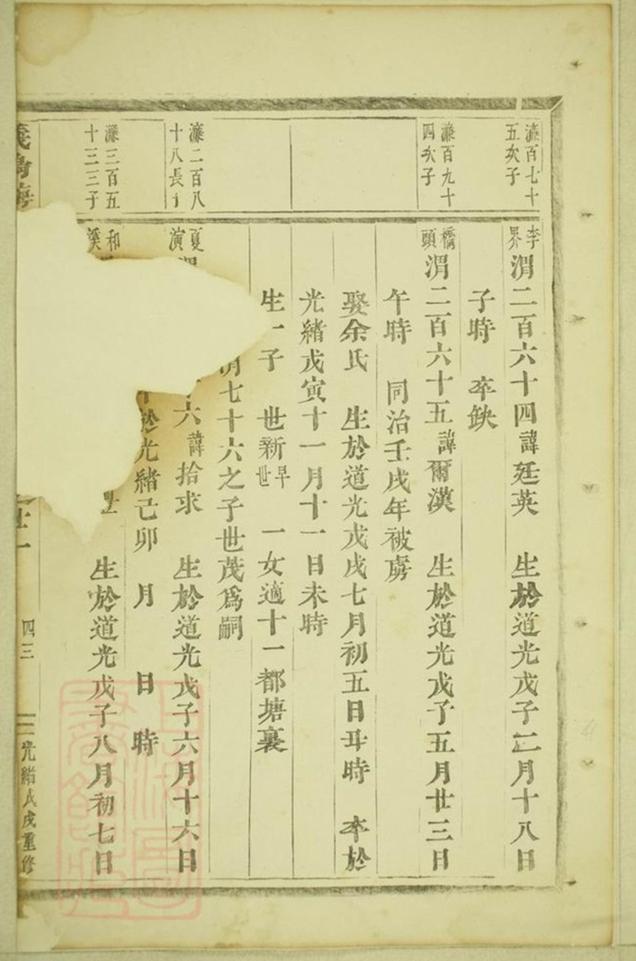 濂百七十
五次子
李
界
渭二百六十四諱廷英 生於道光戊子二月十八日
子時 卒缺
濂百九十
四次子
橋
頭
渭二百六十五諱爾漢 生於道光戊子五月廿三日
午時 同治壬戌年被虜
娶余氏 生於道光戊戌七月初五日丑時 卒於
光緒戊寅十一月十一日未時
生一子 世新早世 一女適十一都塘裏
七十六之子世茂爲嗣
濂二百八
十八長子
夏
演
六諱拾求 生於道光戊子六月十六日
於光緒己卯 月 日 時
濂三百五
十三三子
和
溪
生於道光戊子八月初七日
四三
光緒戊戌重修